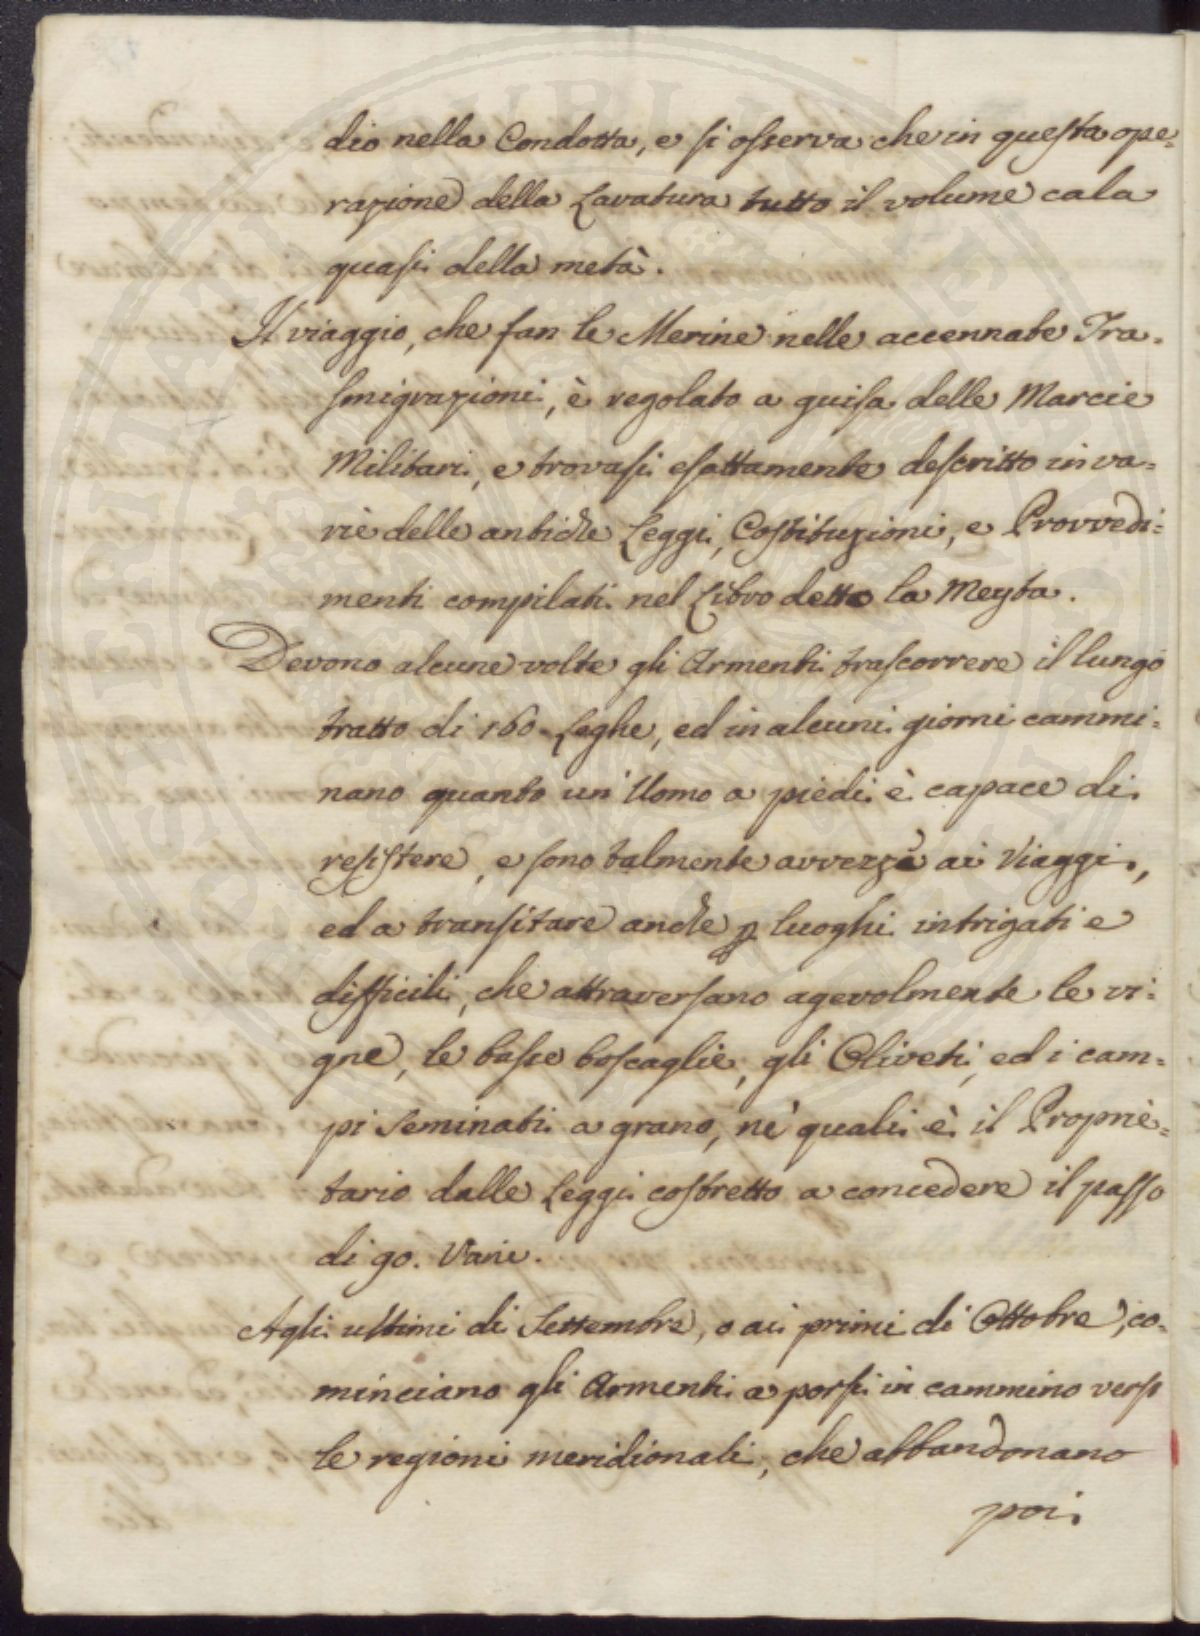 dio nella Condotta, e si osserva che in questa ope=
razione della Lavatura tutto il volume cala
quasi della metà.
Il viaggio, che fan le Merine nelle accennate Tra=
smigrazioni, è regolato a guisa delle Marcie
Militari, e trovasi esattamente descritto in va=
rie delle antiche Leggi, Costituzioni, e Provvedi=
menti compilati nel Libro detto la Meyta.
Devono alcune volte gli Armenti trascorrere il lungo
tratto di 160 Leghe, ed in alcuni giorni cammi=
nano quanto un' Uomo a piedi è capace di
resistere, e sono talmente avvezze ai Viaggi,
ed a transitare anche p luoghi intrigati e
difficili, che attraversano agevolmente le vi=
gne, le basse boscaglie, gli Oliveti, ed i cam=
pi seminati a grano, nè quali è il Proprie=
tario dalle Leggi costretto a concedere il passo
di 90. Varie.
Agli ultimi di Settembre, o ai primi di Ottobre, co=
minciano gli Armenti a porsi in cammino verso
le regioni meridionali, che abbandonano
poi